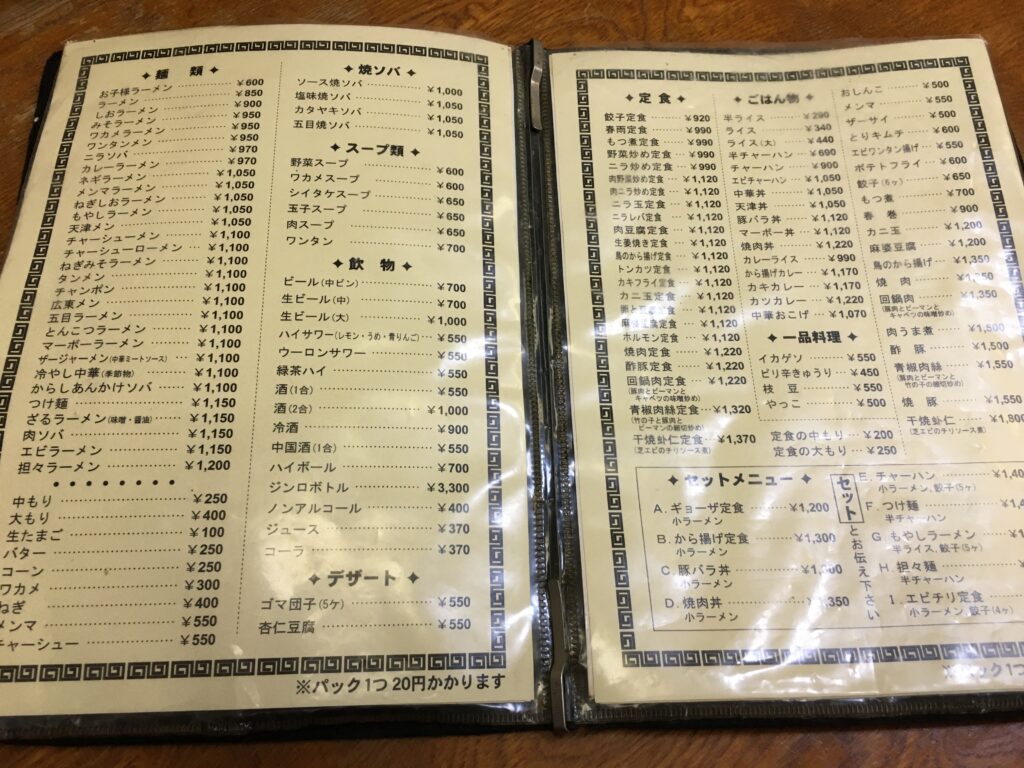 ✦ 麺 類 ✦
お子様ラーメン ¥600
ラーメン ¥850
しおラーメン ¥900
みそラーメン ¥950
ワカメラーメン ¥950
ワンタンメン ¥950
ニラソバ ¥970
カレーラーメン ¥970
ネギラーメン ¥1,050
メンマラーメン ¥1,050
ねぎしおラーメン ¥1,050
もやしラーメン ¥1,050
天津メン ¥1,050
チャーシューメン ¥1,100
チャーシューローメン ¥1,100
ねぎみそラーメン ¥1,100
タンメン ¥1,100
チャンポン ¥1,100
広東メン ¥1,100
五目ラーメン ¥1,100
とんこつラーメン ¥1,100
マーボーラーメン ¥1,100
ザージャーメン(中華ミートソース) ¥1,100
冷やし中華(季節物) ¥1,100
からしあんかけソバ ¥1,100
つけ麺 ¥1,150
ざるラーメン(味噌・醤油) ¥1,150
肉ソバ ¥1,150
エビラーメン ¥1,150
担々ラーメン ¥1,200
中もり ¥250
大もり ¥400
生たまご ¥100
バター ¥250
コーン ¥250
ワカメ ¥300
ねぎ ¥400
メンマ ¥550
チャーシュー ¥550
✦ 焼ソバ ✦
ソース焼ソバ ¥1,000
塩味焼ソバ ¥1,050
カタヤキソバ ¥1,050
五目焼ソバ ¥1,050
✦ スープ類 ✦
野菜スープ ¥600
ワカメスープ ¥600
シイタケスープ ¥650
玉子スープ ¥650
肉スープ ¥650
ワンタン ¥700
✦ 飲 物 ✦
ビール(中ビン) ¥700
生ビール(中) ¥700
生ビール(大) ¥1,000
ハイサワー(レモン・うめ・青りんご) ¥550
ウーロンサワー ¥550
緑茶ハイ ¥550
酒(1合) ¥550
酒(2合) ¥1,000
冷酒 ¥900
中国酒(1合) ¥550
ハイボール ¥700
ジンロボトル ¥3,300
ノンアルコール ¥400
ジュース ¥370
コーラ ¥370
✦ デザート ✦
ゴマ団子(5ケ) ¥550
杏仁豆腐 ¥550
※パック1つ20円かかります
✦ 定食 ✦
餃子定食 ¥920
春雨定食 ¥990
もつ煮定食 ¥990
野菜炒め定食 ¥990
ニラ炒め定食 ¥990
肉野菜炒め定食 ¥1,120
肉ニラ炒め定食 ¥1,120
ニラ玉定食 ¥1,120
ニラレバ定食 ¥1,120
肉豆腐定食 ¥1,120
生姜焼き定食 ¥1,120
鳥のから揚げ定食 ¥1,120
トンカツ定食 ¥1,120
カキフライ定食 ¥1,120
カニ玉定食 ¥1,120
豚と豆腐定食 ¥1,120
麻婆豆腐定食 ¥1,120
ホルモン定食 ¥1,120
焼肉定食 ¥1,220
酢豚定食 ¥1,220
回鍋肉定食 ¥1,220
(豚肉とピーマンと
キャベツの味噌炒め)
青椒肉絲定食 ¥1,320
(竹の子と豚肉と
ピーマンの細切炒め)
干焼蝦仁定食 ¥1,370
(芝エビのチリソース煮)
✦ ごはん物 ✦
半ライス ¥290
ライス ¥340
ライス(大) ¥440
半チャーハン ¥690
チャーハン ¥900
エビチャーハン ¥1,050
中華丼 ¥1,050
天津丼 ¥1,050
豚バラ丼 ¥1,050
マーボー丼 ¥1,050
焼肉丼 ¥1,220
カレーライス ¥990
から揚げカレー ¥1,170
カキカレー ¥1,170
カツカレー ¥1,220
中華おこげ ¥1,070
✦ 一品料理 ✦
イカゲソ ¥550
ピリ辛きゅうり ¥450
枝 豆 ¥550
やっこ ¥500
定食の中もり ¥200
定食の大もり ¥250
おしんこ ¥500
メンマ ¥550
ザーサイ ¥500
とりキムチ ¥600
エビワンタン揚げ ¥550
ポテトフライ ¥600
餃子(6ヶ) ¥650
もつ煮 ¥700
春 巻 ¥900
カニ玉 ¥1,200
麻婆豆腐 ¥1,200
鳥のから揚げ ¥1,350
焼 肉
回鍋肉 ¥1,350
(豚肉とピーマンと
キャベツの味噌炒め)
肉うま煮 ¥1,500
酢 豚 ¥1,500
青椒肉絲 ¥1,550
(豚肉とピーマンと
竹の子の細切炒め)
焼 豚 ¥1,550
干焼蝦仁 ¥1,800
(芝エビのチリソース煮)
✦ セットメニュー ✦
A. ギョーザ定食 ¥1,200
小ラーメン
B. から揚げ定食 ¥1,300
小ラーメン
C. 豚バラ丼
小ラーメン
D. 焼肉丼 ¥1,350
小ラーメン
セットとお伝え下さい
E. チャーハン
小ラーメン, 餃子(5ヶ)
F. つけ麺
半チャーハン
G. もやしラーメン
半ライス, 餃子(5ヶ)
H. 担々麺
半チャーハン
I. エビチリ定食
小ラーメン, 餃子(4ヶ)
※パック1つ